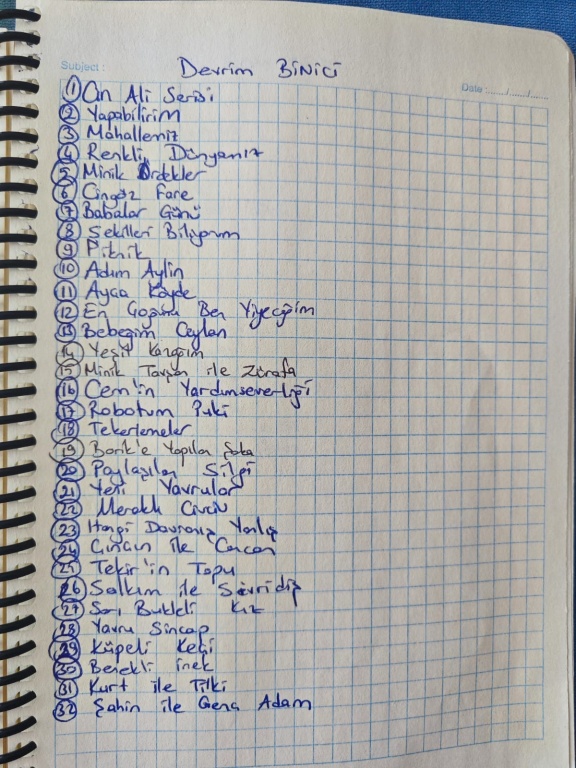 Subject :
Devrim BiNiCi
Date : ....../....../......
1 Cin Ali Serisi
2 Yapabilirim
3 Mahallemiz
4 Renkli Dünyamız
5 Minik Ördekler
6 Cingöz Fare
7 Babalar Günü
8 Şekilleri Biliyorum
9 Piknik
10 Adım Aylin
11 Ayça Köyde
12 En Çoğunu Ben Yiyeceğim
13 Bebeğim Ceylan
14 Yeşil Kazağım
15 Minik Tavşan ile Zürafa
16 Cem'in Yardımseverliği
17 Robotum Puki
18 Tekerlemeler
19 Barık'e Yapılan Şaka
20 Paylaşılan Silgi
21 Yeni Yavrular
22 Meraklı Civciv
23 Hangi Davranış Yanlış
24 ile Cancan
25 Tekir'in Topu
26 Salkım ile Sivridiş
27 Sarı Bukleli Kız
28 Yavru Sincap
29 Küpeli Keçi
30 Benekli inek
31 Kurt ile Tilki
32 Şahin ile Genç Adam